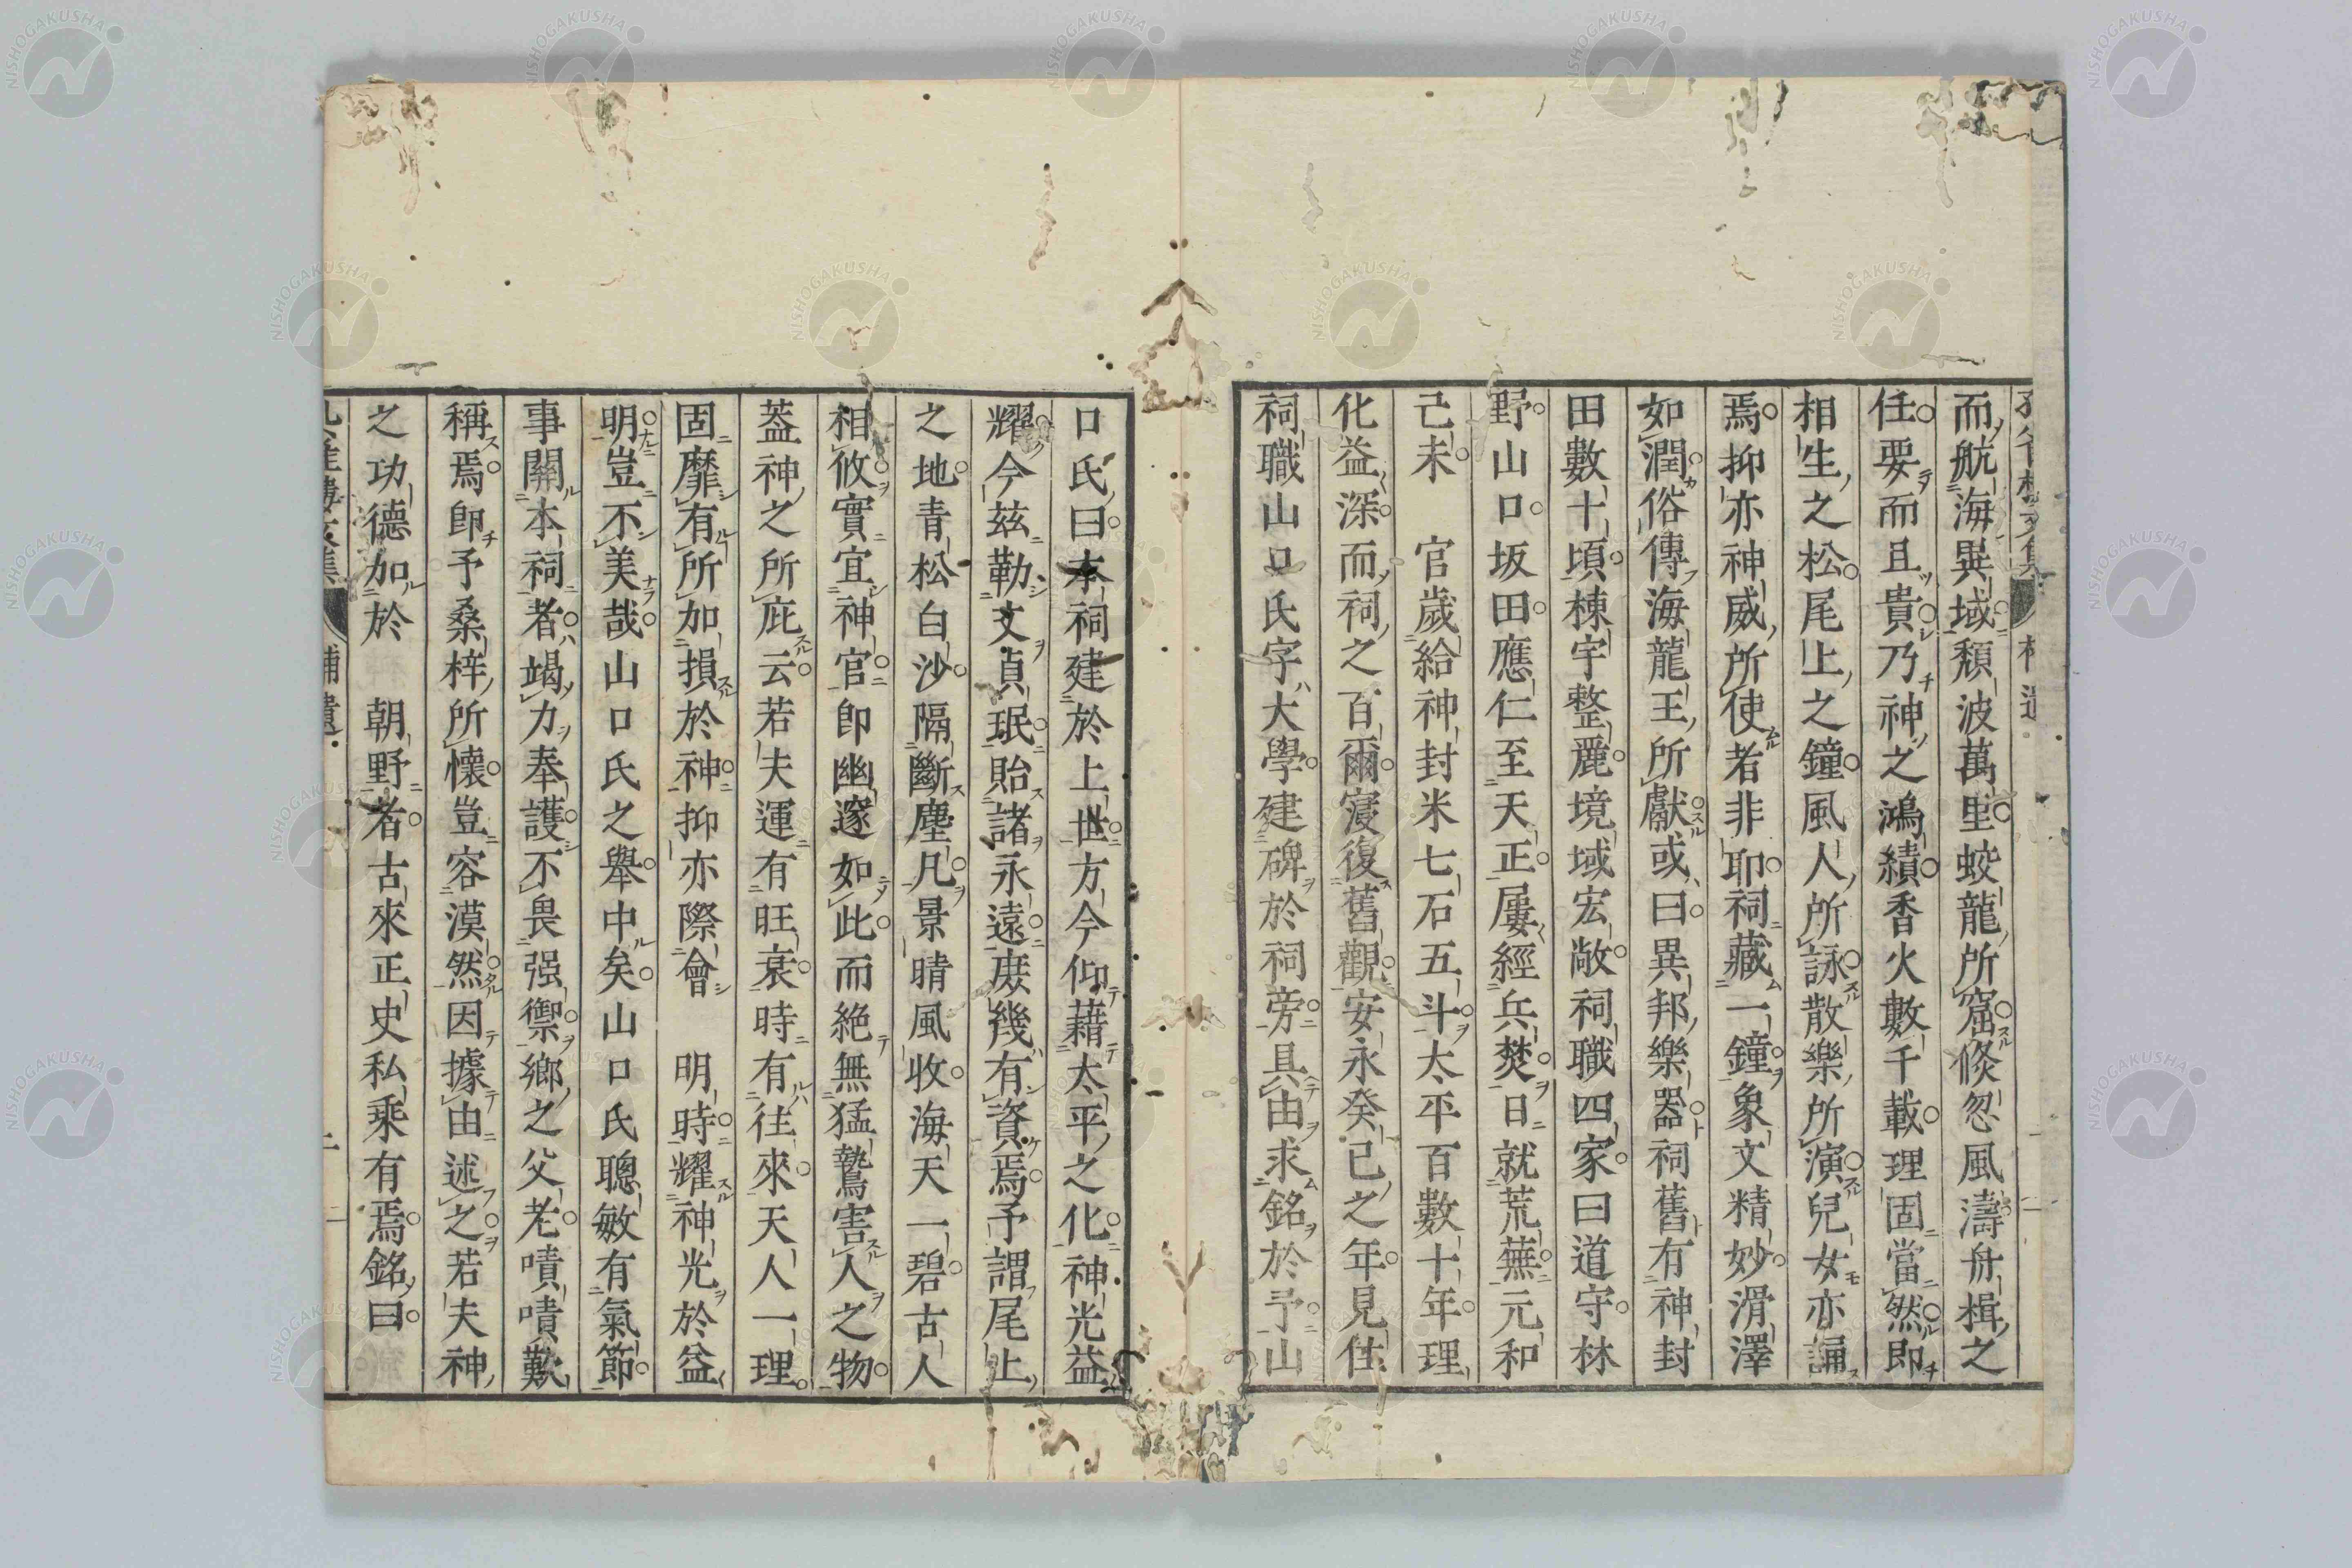 而航海異域頽波萬里蛟龍所窟倐忽風濤舟楫之
任要而且貴乃神之鴻績香火數千載理固當然即
相生之松尾上之鐘風人所詠散樂所演兒女亦誦
焉抑亦神威所使者非耶祠藏一鐘象文精妙滑澤
如潤俗傳海龍王所獻或曰異邦樂器祠舊有神封
田數十頃棟宇整麗境域宏敞祠職四家曰道守林
野山口坂田應仁至天正屢經兵焚日就荒蕪元和
己未 官歲給神封米七石五斗太平百數十年理
化益深而祠之百爾寖復舊觀安永癸巳之年見住
祠職山口氏字大學建碑於祠旁具由求銘於予山
口氏曰本祠建於上世方今仰藉太平之化神光益
耀今玆勒文貞珉貽諸永遠庻幾有資焉予謂尾上
之地青松白沙隔斷塵凡景晴風收海天一碧古人
相攸實宜神官即幽邃如此而絶無猛鷙害人之物
葢神之所庇云若夫運有旺衰時有往來天人一理
固靡有所加損於神抑亦際會 明時耀神光於益
明豈不美哉山口氏之擧中矣山口氏聰敏有氣節
事關本祠者竭力奉護不畏强禦鄉之父老嘖嘖歎
稱焉即予桑梓所懷豈容漠然因據由述之若夫神
之功德加於 朝野者古來正史私乘有焉銘曰
補遺
NISHOGAKUSHA